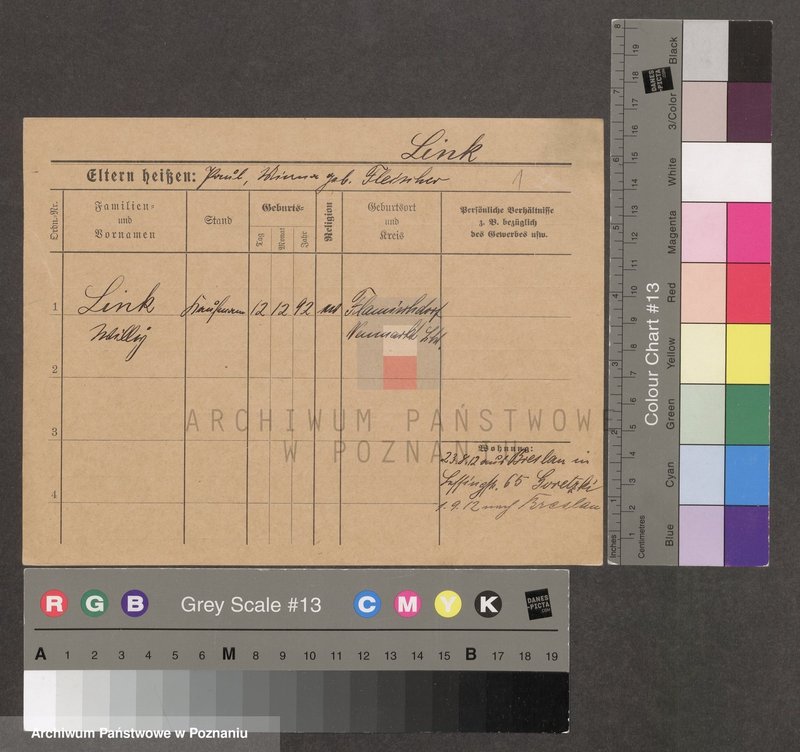 Link
Eltern heißen: Paul, Minna geb. Fleischer
1
Ordn.-Nr.
Familien-
und
Vornamen
Stand
Geburts-
Tag
Monat
Jahr
Religion
Geburtsort
und
Kreis
Persönliche Verhältnisse
z. B. bezüglich
des Gewerbes usw.
1
Link
Willy
Kaufmann
12 12 92
Neumarkt
2
3
4
Wohnung:
23.8.12 aus Breslau in
Lessingstr. 65 Goretzki
1.9.12 nach Breslau
ARCHIWUM PAŃSTWOWE
W POZNANIU
8
7
6
5
4
3
2
1
Inches
19
18
17
16
15
14
13
12
11
10
9
8
7
6
5
4
3
2
1
Centimetres
Colour Chart #13
Black
3/Color
White
Magenta
Red
Yellow
Green
Cyan
Blue
DANES
-PICTA
.COM
R G B Grey Scale #13 C M Y K
DANES
-PICTA
.COM
A 1 2 3 4 5 6 M 8 9 10 11 12 13 14 15 B 17 18 19
Archiwum Państwowe w Poznaniu